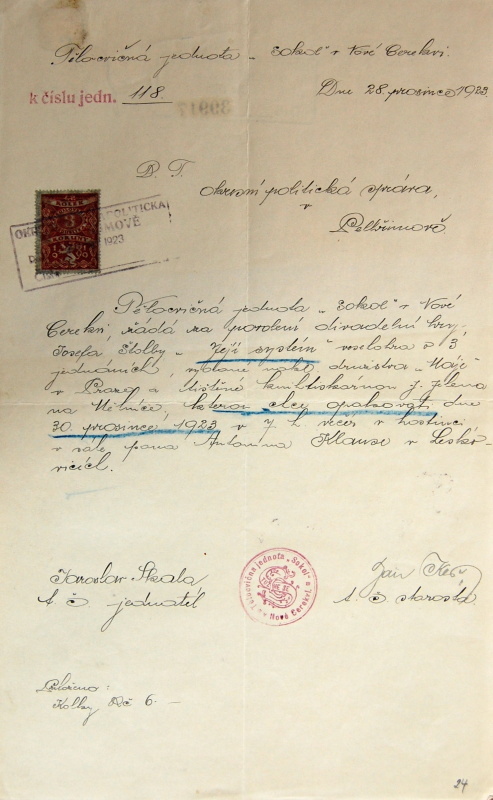 Tělocvičná jednota „Sokol" v Nové Cerekvi.
k číslu jedn. 118
Dne 28. prosince 1923.
D. T.
okresní politická správa,
v
Pelhřimově
3
KORUNY
POLITICKÁ
1923
Tělocvičná jednota „Sokol" v Nové
Cerekvi žádá za povolení divadelní hry,
Josefa Štolby „Její systém" veselohra o 3
jednáních, vydané nakl. družstva „Máje"
v Praze a tištěné knihtiskárnou J. Jelena
na Mělníce, kterou chce opakovati dne
30. prosince 1923 v 7 h. večer v hostinci
v sále pana Antonína Klause v Lesko-
vicích.
Jaroslav Skala
t. č. jednatel
Tělocvičná jednota „Sokol" v Nové Cerekvi
Jan
t. č. starosta
Přiloženo:
Kolky Kč 6.—
24